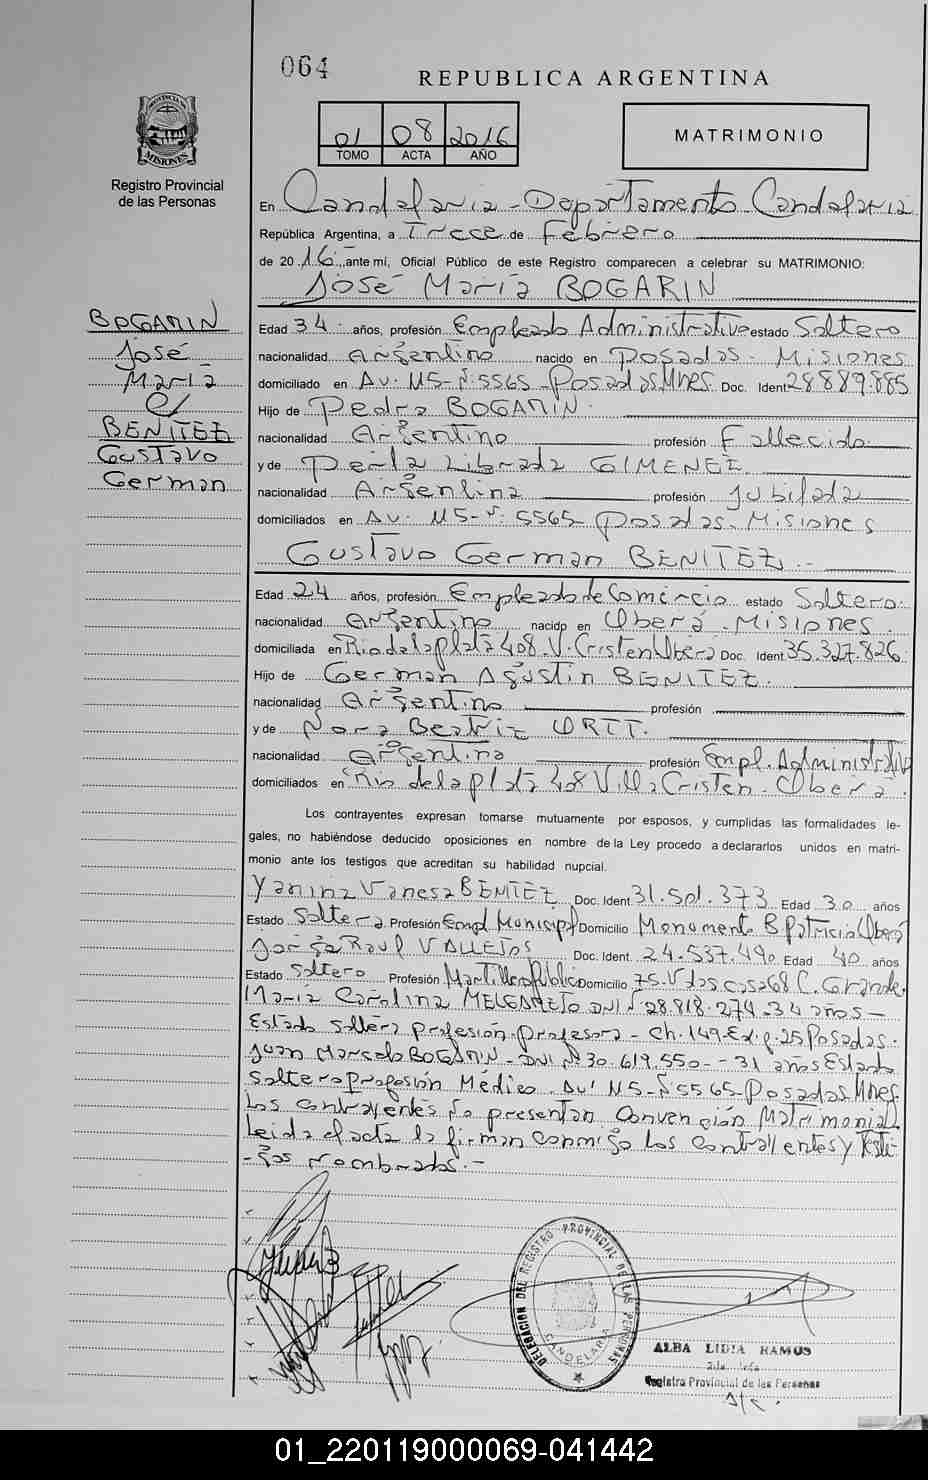 064
REPUBLICA ARGENTINA
PROVINCIA DE MISIONES
Registro Provincial
de las Personas
01 08 2016
TOMO ACTA AÑO
MATRIMONIO
En Candelaria - Departamento Candelaria
República Argentina, a Trece de Febrero
de 20 16 ante mí, Oficial Público de este Registro comparecen a celebrar su MATRIMONIO:
José María BOGARIN
BOGARIN
José
María
c/
BENITEZ
Gustavo
German
Edad 34 años, profesión Empleado Administrativo estado Soltero
nacionalidad Argentino nacido en Posadas - Misiones
domiciliado en Av. 115-N° 5565-Posadas Mnes. Doc. Ident 28.889.885
Hijo de Pedro BOGARIN.
nacionalidad Argentino profesión Fallecido
y de Perla Librada GIMENEZ
nacionalidad Argentina profesión Jubilada
domiciliados en Av. 115-N° 5565 Posadas - Misiones
Gustavo German BENITEZ.-
Edad 24 años, profesión Empleado de Comercio estado Soltero.
nacionalidad Argentino nacido en Oberá - Misiones
domiciliada en Rio de la plata 408-V. Cristen Oberá Doc. Ident 35.327.826
Hijo de German Agustin BENITEZ.
nacionalidad Argentino profesión
y de Nora Beatriz ORTT.
nacionalidad Argentina profesión Empl. Administrativo
domiciliados en Rio de la plata 408 Villa Cristen - Oberá.
Los contrayentes expresan tomarse mutuamente por esposos, y cumplidas las formalidades le-
gales, no habiéndose deducido oposiciones en nombre de la Ley procedo a declararlos unidos en matri-
monio ante los testigos que acreditan su habilidad nupcial.
Yanina Vanesa BENITEZ Doc. Ident 31.501.373 Edad 30 años
Estado Soltera Profesión Empl Municipal Domicilio Monumento B Patricia Oberá
Jorge Raul VALLEJOS Doc. Ident. 24.537.490 Edad 40 años
Estado Soltero Profesión Martillero Público Domicilio 75.Vdas casa 68 C. Grande.
María Carolina DNI N° 28.818.274 - 34 años -
Estado soltera profesión profesora - Ch. 149-Ed. 25 Posadas.
Juan Marcelo BOGARIN - DNI N° 30.619.550 - 31 años Estado
Soltero Profesión Médico. Av. 115-N° 5565-Posadas Mnes.
Los contrayentes No presentan Convención Matrimonial
Leida el acta la firman conmigo los contrayentes y Testi-
-gos Nombrados.-
DELEGACION DEL REGISTRO PROVINCIAL DE LAS PERSONAS
CANDELARIA
ALBA LIDIA RAMOS
Registro Provincial de las Personas
A/C.
01_220119000069-041442